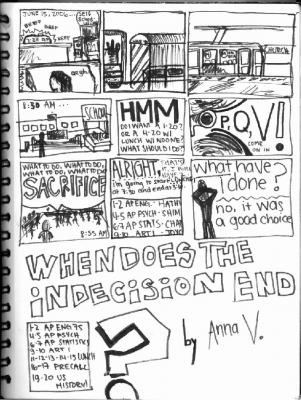 JUNE 15, 2006...
BEEP
BEEP
CHURCH
8:30 AM ...
SCHOOL
HMM
DO I WANT A 1-20?
OR A 4-20 W/
LUNCH W/NO ONE?
WHAT SHOULD I DO?
P, Q, V!
COME
ON IN
WHAT TO DO, WHAT TO DO,
WHAT TO DO, WHAT TO DO
SACRIFICE
8:55 AM
ALRIGHT,
THAT'S
I'm going to start
@ 7:30 and end @ 3:10
1-2 AP ENG.- HATH
4-5 AP PSYCH - SHIM
6-7 AP STATS - CHA
9-10 ART 1
what have
I done?
no, it was
a good choice
WHEN DOES THE
INDECISION END
?
by Anna V.
1-2 AP ENG 7S
4-5 AP PSYCH
6-7 AP STATISTICS
9-10 ART 1
11-12-13-14-15 LUNCH
16-17 PRECALC
19-20 US
HISTORY!